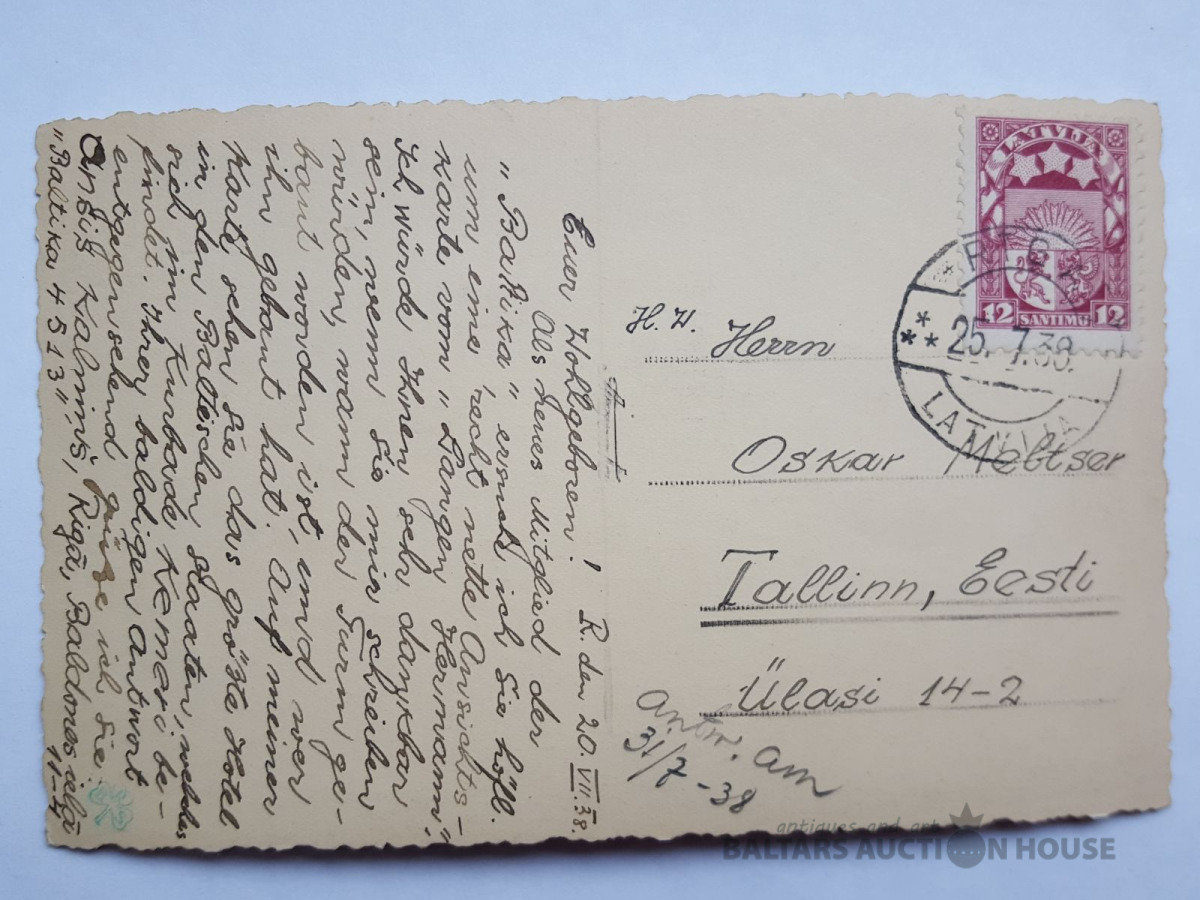 R. den 20. VII. 38.
Euer Wohlgeboren!
Als neues Mitglied der
"Baltika" ersuch ich Sie höfl.
um eine recht nette Ansichts-
karte vom "Langen Hermann".
Ich würde Ihnen sehr dankbar
sein, wenn Sie mir schreiben
würden, wann der Turm ge-
baut worden ist, und wer
ihn gebaut hat. Auf meiner
Karte sehen Sie das größte Hotel
in den Baltischen Staaten, welches
sich im Kurbade Kemeri be-
findet. Ihrer baldigen Antwort
entgegensehend grüße ich Sie:
Kalniņš, Rigā, Baldones ielā
"Baltika 4513" 11-4
H. W. Herrn
Oskar Meltser
Tallinn, Eesti
Ülasi 14-2
antw. am
31/7-38
LATVIJA
12 SANTIMU 12
RIGA
25. 7. 38.
LATVIJA
antiques and art
BALTARS AUCTION HOUSE